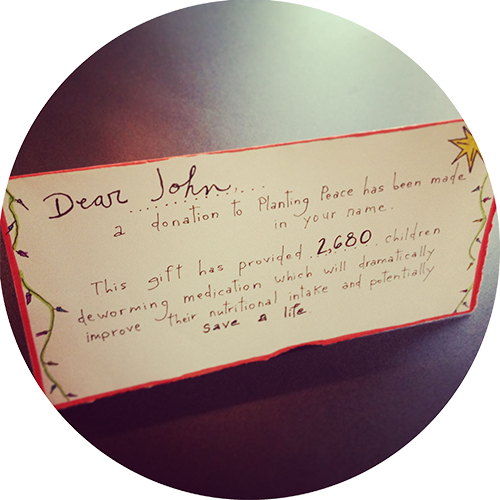 Dear John,
a donation to Planting Peace has been made
in your name.
This gift has provided 2,680 children
deworming medication which will dramatically
improve their nutritional intake and potentially
save a life.